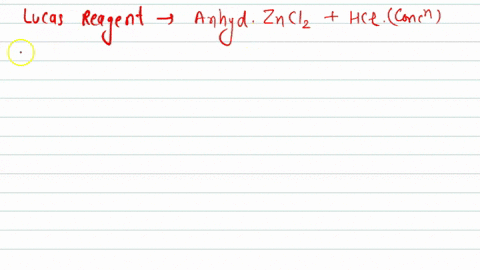 Lucas Reagent → Anhyd. ZnCl₂ + HCl. (Concⁿ)